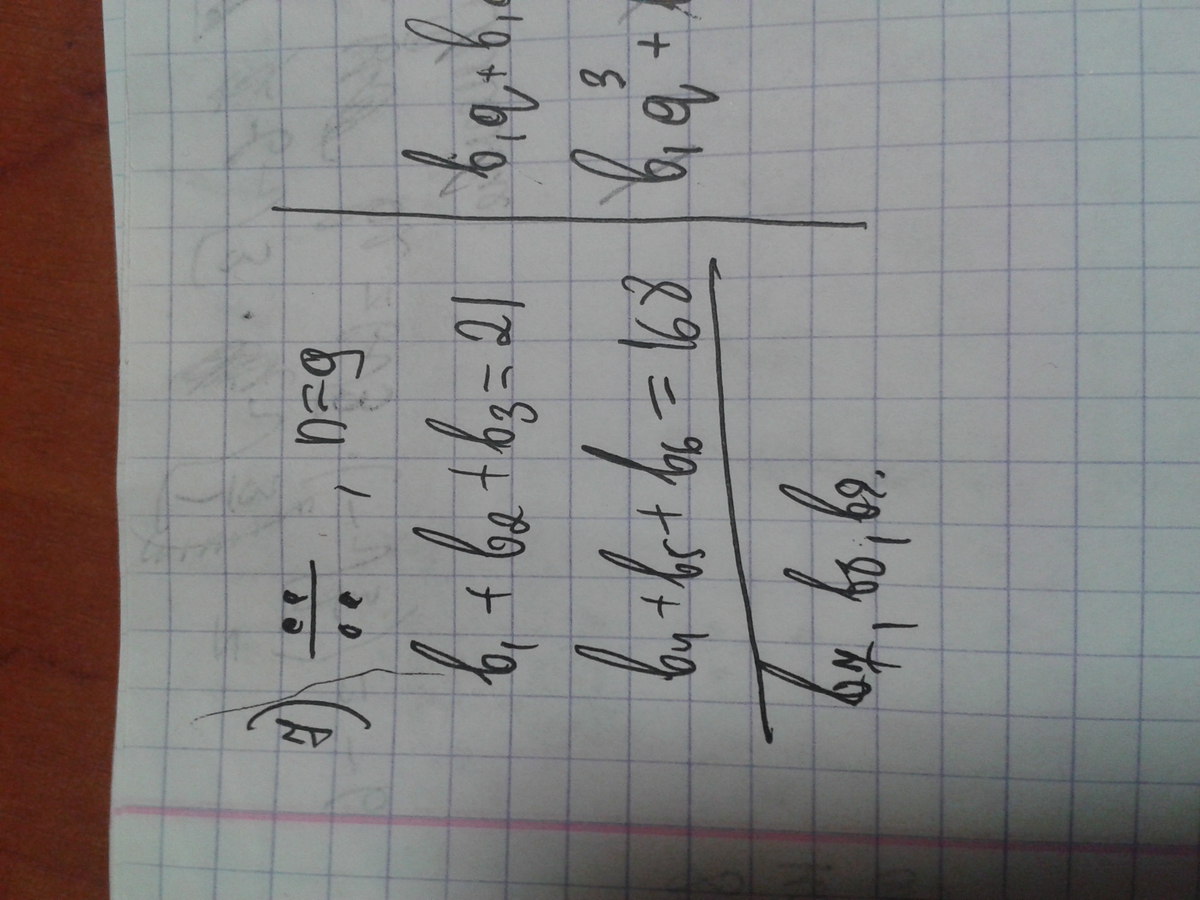 7) ∺, n=9
b₁ + b₂ + b₃ = 21
b₄ + b₅ + b₆ = 168
b₇, b₈, b₉.
b₁q + b₁
b₁q³ +